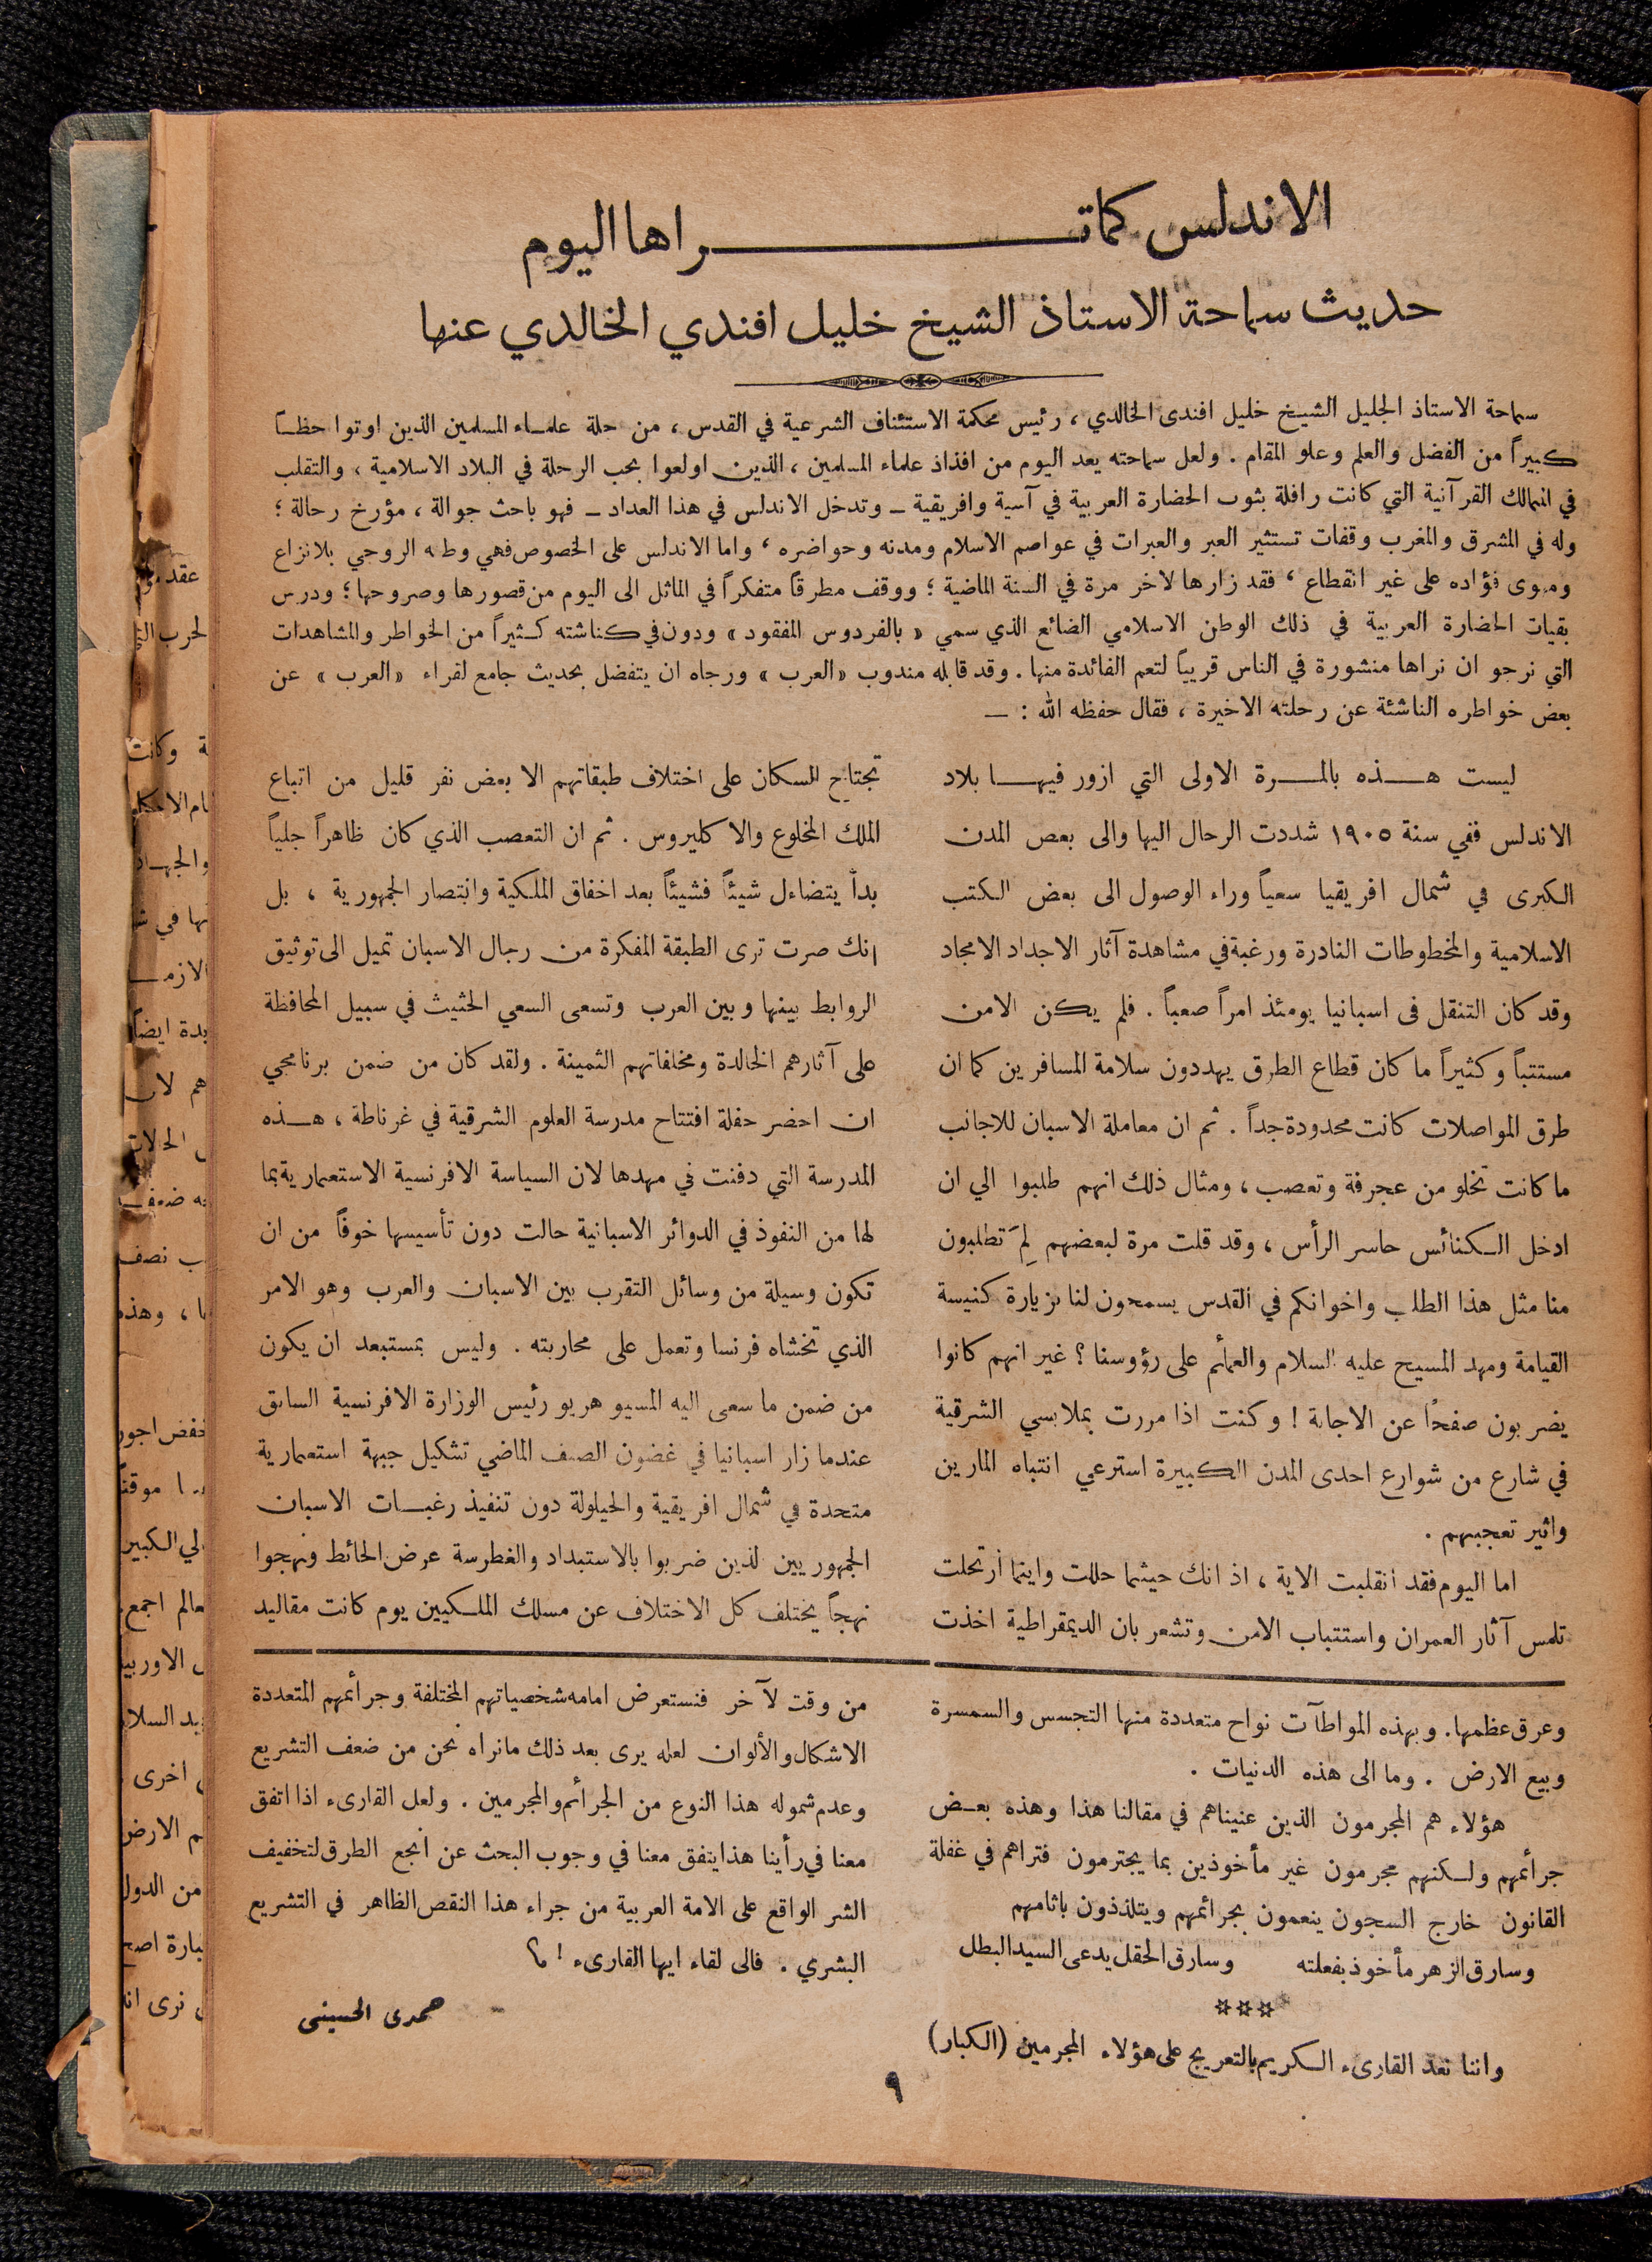 الاندلس كما تراها اليوم
حديث سماحة الاستاذ الشيخ خليل افندي الخالدي عنها
سماحة الاستاذ الجليل الشيخ خليل افندى الخالدي ، رئيس محكمة الاستئناف الشرعية في القدس ، من حلة علماء المسلمين الذين اوتوا حظاً
كبيراً من الفضل والعلم وعلو المقام . ولعل سماحته يعد اليوم من افذاذ علماء المسلمين ، الذين اولعوا بحب الرحلة في البلاد الاسلامية ، والتقلب
في الممالك القرآنية التي كانت رافلة بثوب الحضارة العربية في آسية وافريقية ـ وتدخل الاندلس في هذا العداد ـ فهو باحث جوالة ، مؤرخ رحالة ؛
وله في المشرق والمغرب وقفات تستثير العبر والعبرات في عواصم الاسلام ومدنه وحواضره ، واما الاندلس على الخصوص فهي وطنه الروحي بلانزاع
ومهوى فؤاده على غير انقطاع ، فقد زارها لاخر مرة في السنة الماضية ؛ ووقف مطرقاً متفكراً في الماثل الى اليوم من قصورها وصروحها ؛ ودرس
بقيات الحضارة العربية في ذلك الوطن الاسلامي الضائع الذي سمي « بالفردوس المفقود » ودون في كناشته كثيراً من الخواطر والمشاهدات
التي نرجو ان نراها منشورة في الناس قريباً لتعم الفائدة منها . وقد قابله مندوب «العرب» ورجاه ان يتفضل بحديث جامع لقراء «العرب» عن
بعض خواطره الناشئة عن رحلته الاخيرة ، فقال حفظه الله : ـ
ليست هذه بالمرة الاولى التي ازور فيها بلاد
الاندلس ففي سنة ١٩٠٥ شددت الرحال اليها والى بعض المدن
الكبرى في شمال افريقيا سعياً وراء الوصول الى بعض الكتب
الاسلامية والمخطوطات النادرة ورغبة في مشاهدة آثار الاجداد الامجاد
وقد كان التنقل فى اسبانيا يومئذ امراً صعباً . فلم يكن الامن
مستتباً وكثيراً ما كان قطاع الطرق يهددون سلامة المسافرين كما ان
طرق المواصلات كانت محدودة جداً . ثم ان معاملة الاسبان للاجانب
ما كانت تخلو من عجرفة وتعصب ، ومثال ذلك انهم طلبوا الي ان
ادخل الكنائس حاسر الرأس ، وقد قلت مرة لبعضهم لِمَ تطلبون
منا مثل هذا الطلب واخوانكم في القدس يسمحون لنا بزيارة كنيسة
القيامة ومهد المسيح عليه السلام والعمائم على رؤوسنا ؟ غير انهم كانوا
يضربون صفحاً عن الاجابة ! وكنت اذا مررت بملابسي الشرقية
في شارع من شوارع احدى المدن الكبيرة استرعي انتباه المارين
واثير تعجبهم .
اما اليوم فقد انقلبت الاية ، اذ انك حيثما حللت واينما ارتحلت
تلمس آثار العمران واستتباب الامن وتشعر بان الديمقراطية اخذت
تجتاح السكان على اختلاف طبقاتهم الا بعض نفر قليل من اتباع
الملك المخلوع والاكليروس . ثم ان التعصب الذي كان ظاهراً جلياً
بدأ يتضاءل شيئاً فشيئاً بعد اخفاق الملكية وانتصار الجمهورية ، بل
انك صرت ترى الطبقة المفكرة من رجال الاسبان تميل الى توثيق
الروابط بينها وبين العرب وتسعى السعي الحثيث في سبيل المحافظة
على آثارهم الخالدة ومخلفاتهم الثمينة . ولقد كان من ضمن برنامجي
ان احضر حفلة افتتاح مدرسة العلوم الشرقية في غرناطة ، هذه
المدرسة التي دفنت في مهدها لان السياسة الافرنسية الاستعمارية بما
لها من النفوذ في الدوائر الاسبانية حالت دون تأسيسها خوفاً من ان
تكون وسيلة من وسائل التقرب بين الاسبان والعرب وهو الامر
الذي تخشاه فرنسا وتعمل على محاربته . وليس بمستبعد ان يكون
من ضمن ما سعى اليه المسيو هريو رئيس الوزارة الافرنسية السابق
عندما زار اسبانيا في غضون الصيف الماضي تشكيل جبهة استعمارية
متحدة في شمال افريقية والحيلولة دون تنفيذ رغبات الاسبان
الجمهوريين لذين ضربوا بالاستبداد والغطرسة عرض الحائط ونهجوا
نهجاً يختلف كل الاختلاف عن مسلك الملكيين يوم كانت مقاليد
وعرق عظمها. وبهذه المواطآت نواح متعددة منها التجسس والسمسرة
وبيع الارض . وما الى هذه الدنيات .
هؤلاء هم المجرمون الذين عنيناهم في مقالنا هذا وهذه بعض
جرائمهم ولكنهم مجرمون غير مأخوذين بما يجترمون فتراهم في غفلة
القانون خارج السجون ينعمون بجرائمهم ويتلذذون باثامهم
وسارق الزهر مأخوذ بفعلته وسارق الحقل يدعى السيد البطل
***
واننا نعد القارىء الكريم بالتعريج على هؤلاء المجرمين (الكبار)
من وقت لآخر فنستعرض امامه شخصياتهم المختلفة وجرائمهم المتعددة
الاشكال والألوان لعله يرى بعد ذلك مانراه نحن من ضعف التشريع
وعدم شموله هذا النوع من الجرائم والمجرمين . ولعل القارىء اذا اتفق
معنا في رأينا هذا يتفق معنا في وجوب البحث عن انجع الطرق لتخفيف
الشر الواقع على الامة العربية من جراء هذا النقص الظاهر في التشريع
البشري . فالى لقاء ايها القارىء !
حمدى الحسينى
٩